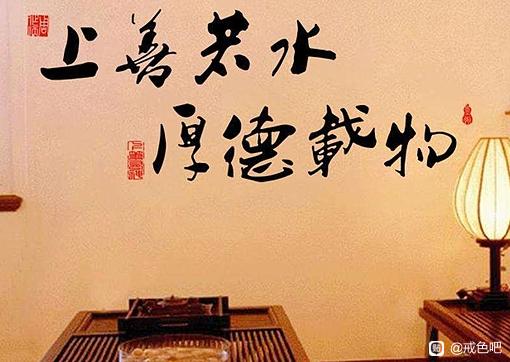 上善若水
厚德載物
@戒色吧